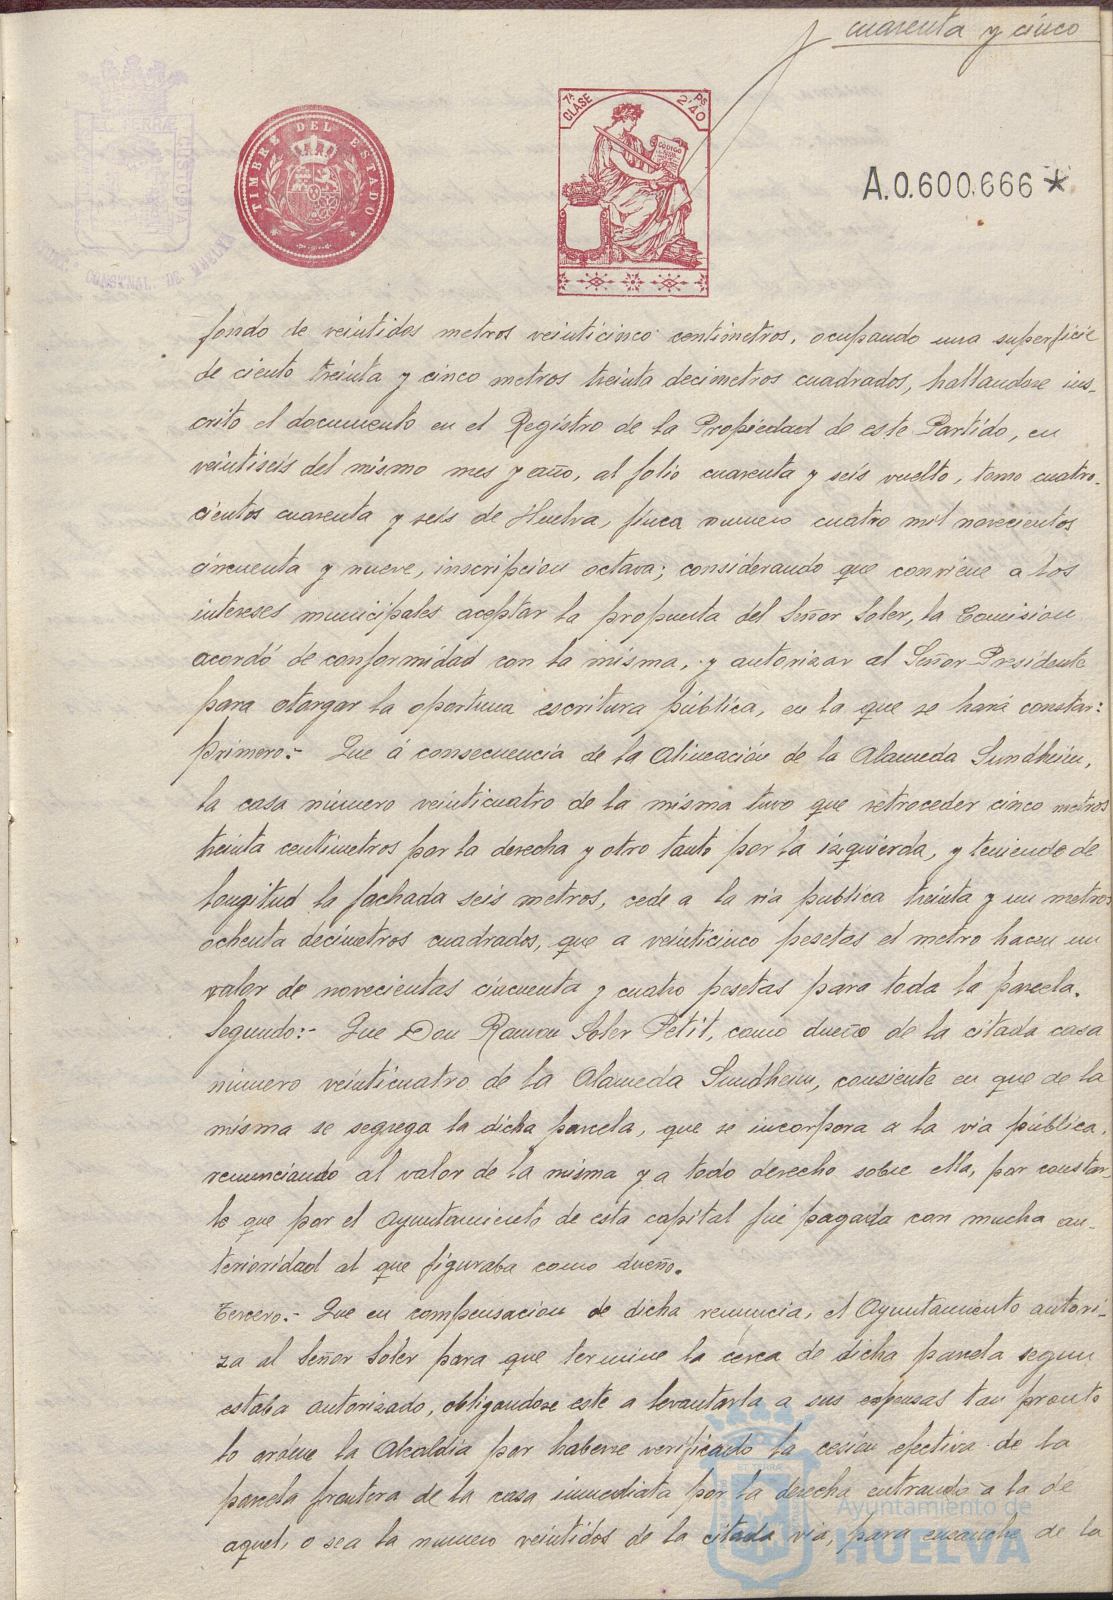 cuarenta y cinco
TIMBRE DEL ESTADO
7ª CLASE
PS 2'40
CODIGO
A.0.600.666 *
CONST'NAL. DE HUELVA
fondo de veintidos metros veinticinco centimetros, ocupando una superficie
de ciento treinta y cinco metros treinta decimetros cuadrados, hallandose ins-
crito el documento en el Registro de la Propiedad de este Partido, en
veintiseis del mismo mes y año, al folio cuarenta y seis vuelto, tomo cuatro-
cientos cuarenta y seis de Huelva, finca numero cuatro mil novecientos
cincuenta y nueve, inscripcion octava; considerando que conviene a los
intereses municipales aceptar la propuesta del Señor Soler, la Comision
acordó de conformidad con la misma, y autorizar al Señor Presidente
para otorgar la oportuna escritura pública, en la que se hará constar:
primero:- Que á consecuencia de la alineación de la Alameda Sundheim,
la casa número veinticuatro de la misma tuvo que retroceder cinco metros
treinta centimetros por la derecha y otro tanto por la izquierda, y teniendo de
longitud la fachada seis metros, cede a la via publica treinta y un metros
ochenta decimetros cuadrados, que a veinticinco pesetas el metro hacen un
valor de novecientas cincuenta y cuatro pesetas para toda la parcela.
Segundo:- Que Don Ramon Soler Petit, como dueño de la citada casa
número veinticuatro de la Alameda Sundheim, consiente en que de la
misma se segrega la dicha parcela, que se incorpora a la via pública,
renunciando al valor de la misma y a todo derecho sobre ella, por constar-
le que por el Ayuntamiento de esta capital fué pagada con mucha an-
terioridad al que figuraba como dueño.
Tercero:- Que en compensacion de dicha renuncia, el Ayuntamiento autori-
za al Señor Soler para que termine la cerca de dicha parcela segun
estaba autorizado, obligandose este a levantarla a sus expensas tan pronto
lo ordene la Alcaldia por haberse verificado la cesión efectiva de la
parcela frontera de la casa inmediata por la derecha entrando a la de
aquel, o sea la numero veintidos de la citada via, para ensanche de la
Ayuntamiento de
HUELVA